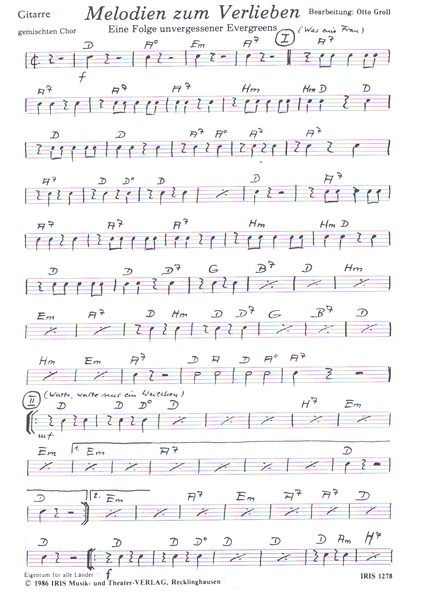 Gitarre Melodien zum Verlieben Bearbeitung: Otto Groll
gemischten Chor Eine Folge unvergessener Evergreens I (Was eine Frau)
D A° Em A7 A7
f
A7 A7 A7 Hm Hm D
D D A7 A° A7 A7
A7 D D° D D A7
A7 A7 A7 Hm Hm D
D D D7 G B7 D Hm
Em A7 D Hm D D7 G B7 D
Hm Em A7 D A D A° A7
II (Warte, warte nur ein Weilchen)
D D D° D H7 Em
mf
Em 1. Em A7 D
D 2. Em A7 Em A7 A7 D
D D D° D D Am H7
f
Eigentum für alle Länder
© 1986 IRIS Musik- und Theater-VERLAG, Recklinghausen IRIS 1278